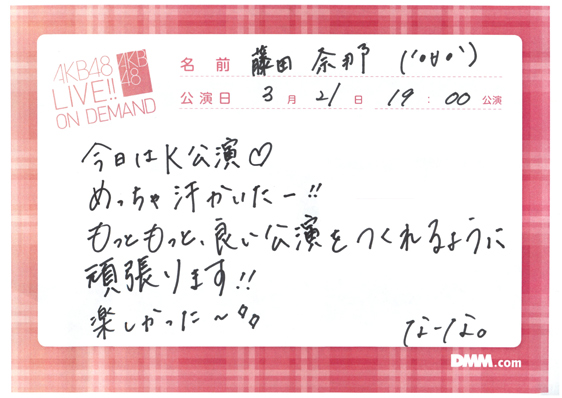 AKB48
LIVE!!
ON DEMAND
AKB
48
名前 藤田 奈那 (´・∀・`)
公演日 3月21日 19:00公演
今日はK公演♡
めっちゃ汗かいたー!!
もっともっと、良い公演をつくれるように
頑張ります!!
楽しかった〜
なーな。
DMM.com